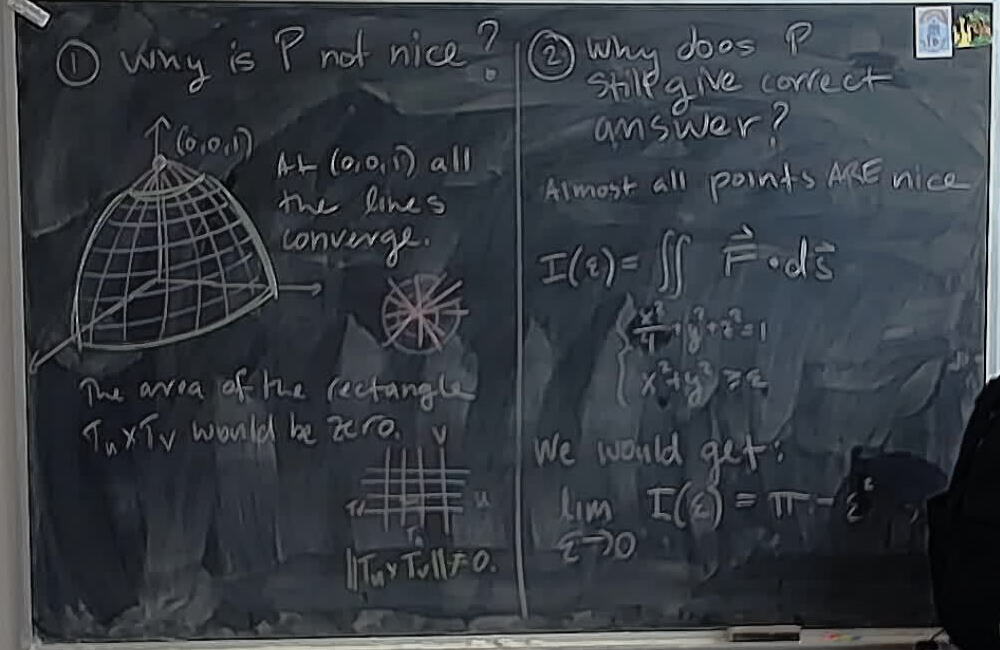 ① Why is P not nice?
(0,0,1)
At (0,0,1) all
the lines
converge.
The area of the rectangle
Tu×Tv would be zero.
v
u
Tv
Tu
||Tu×Tv||≠0.
② Why does P
still give correct
answer?
Almost all points ARE nice
I(ε) = ∬ F⃗·ds⃗
{ x²/4+y²+z²=1
x²+y² ≥ ε
We would get:
lim I(ε) = π - ε²
ε→0